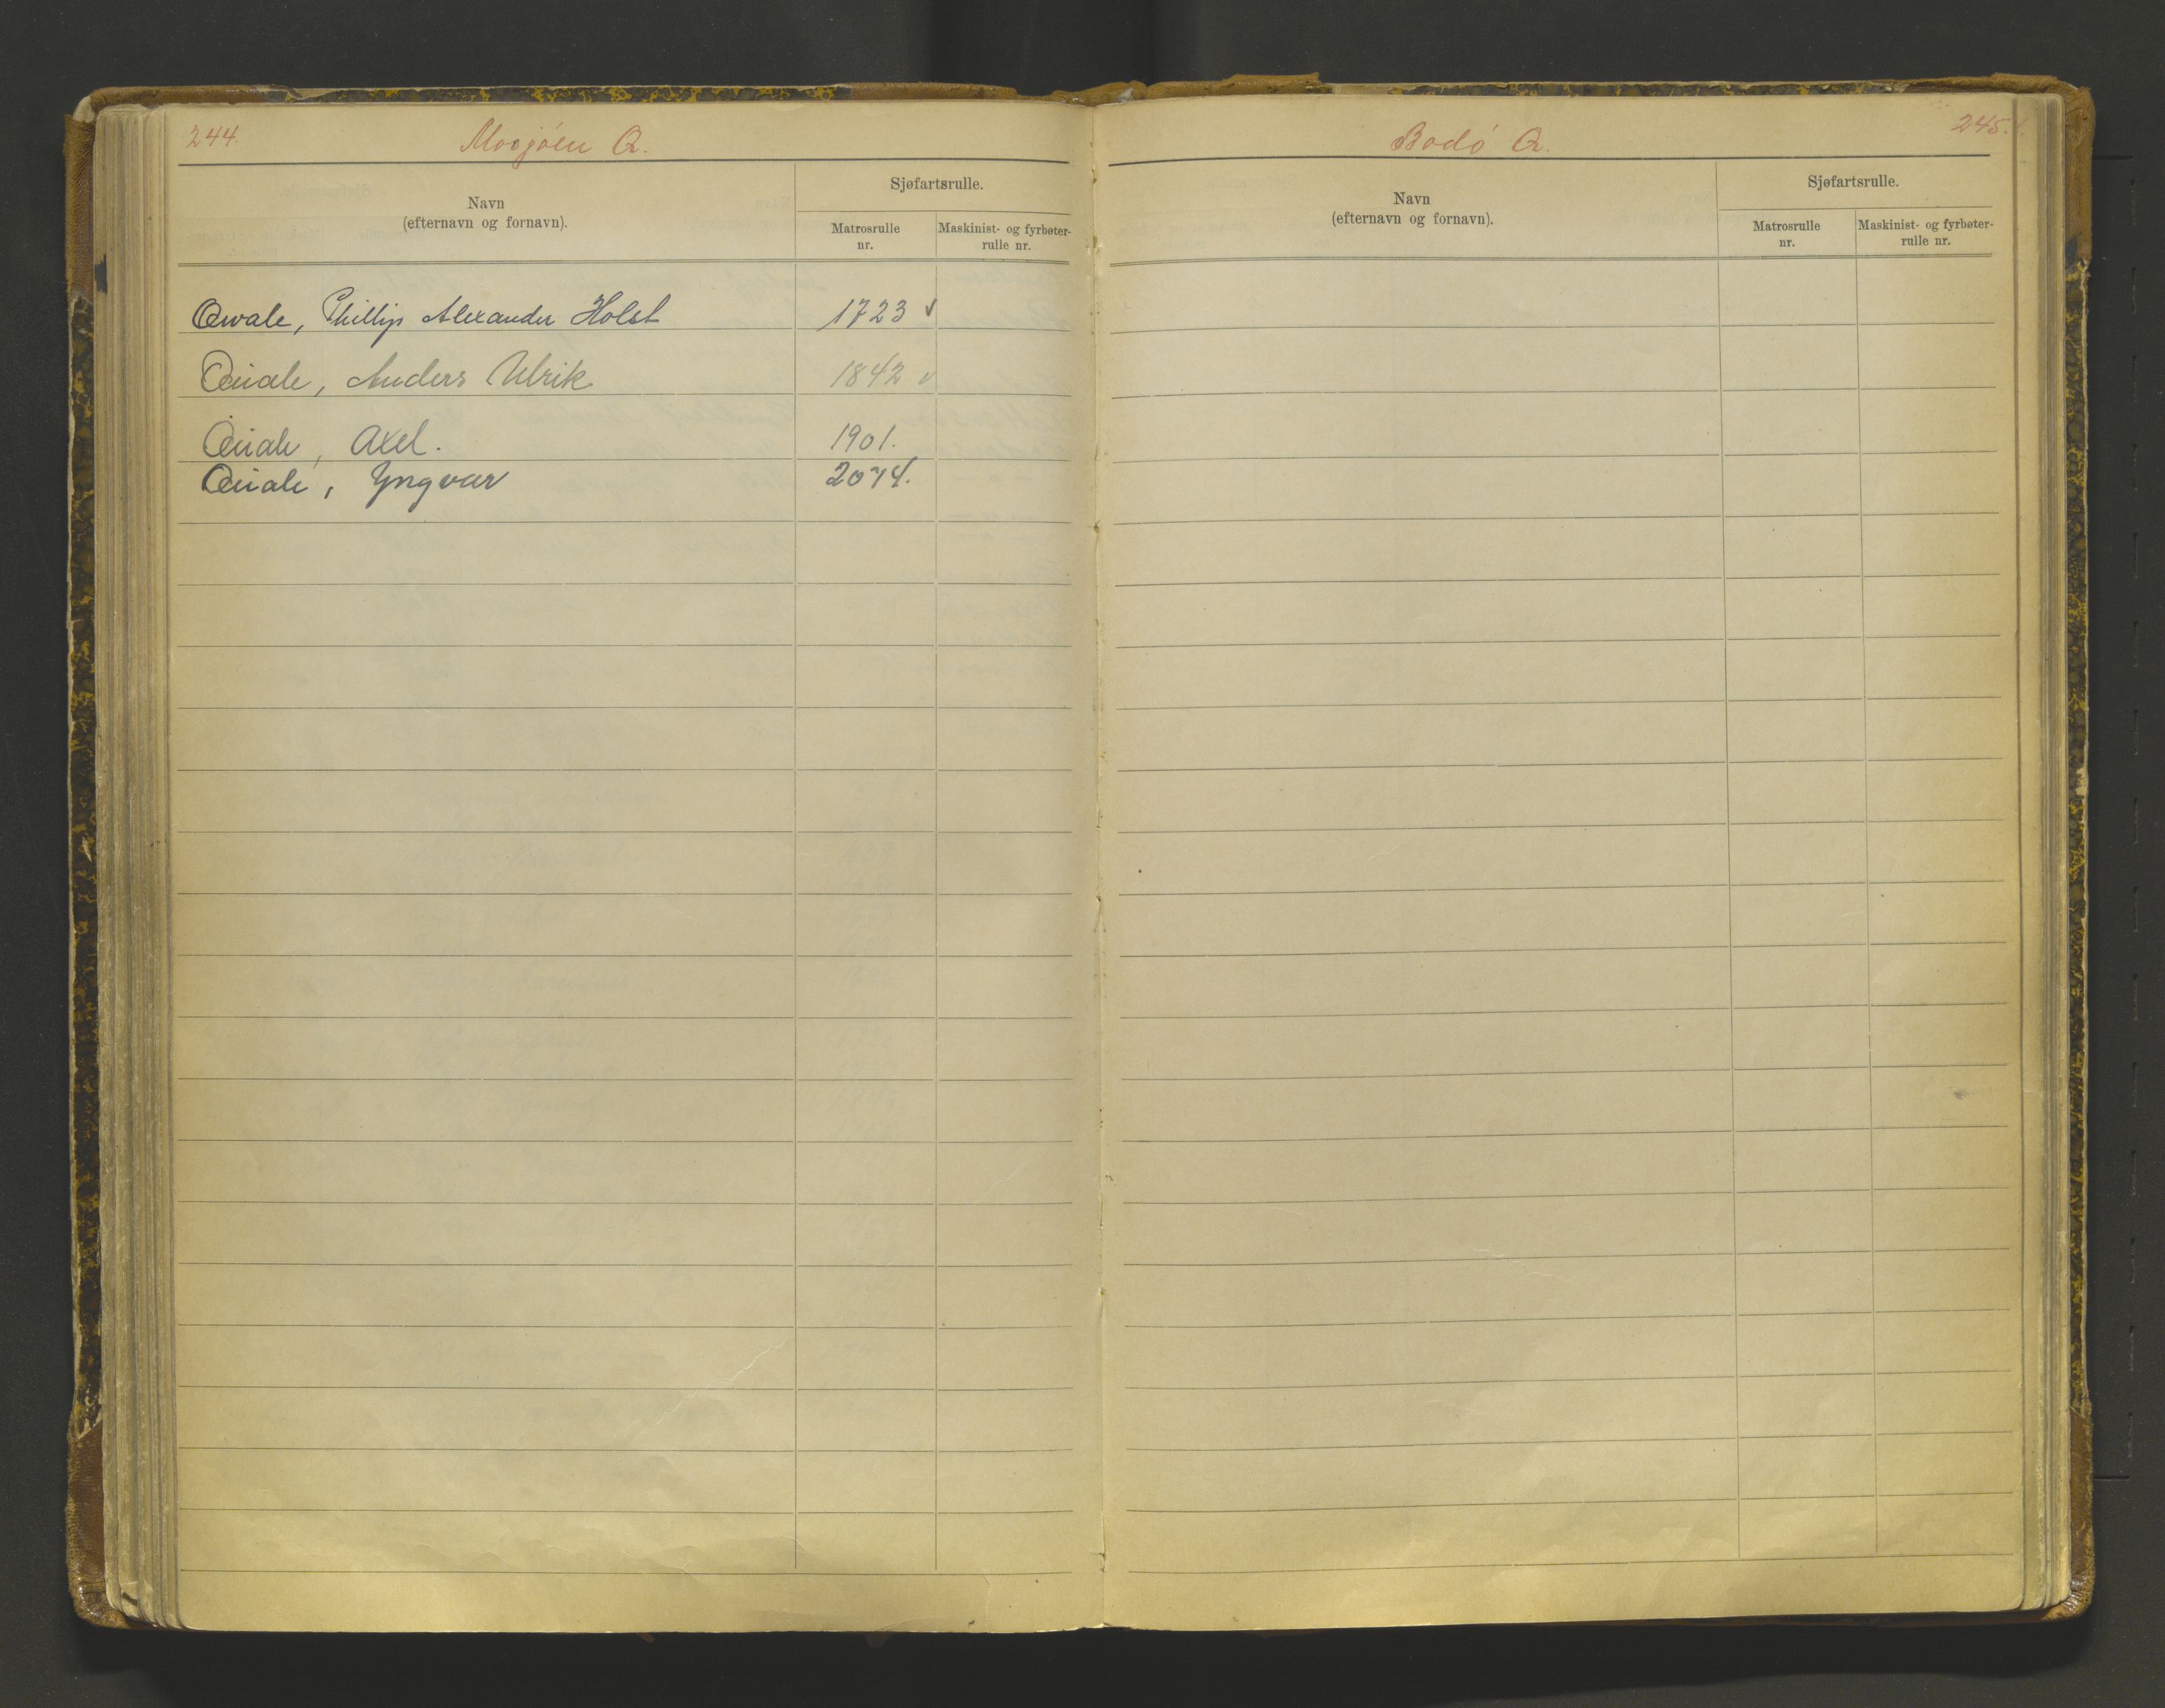 244.
Mosjøen Q.
Navn
(efternavn og fornavn).
Sjøfartsrulle.
Matrosrulle nr.
Maskinist- og fyrbøter-rulle nr.
Qvale, Phillip Alexander Holst 1723 ✓
Qvale, Anders Ulrik 1842 ✓
Qvale, Axel. 1901.
Qvale, Yngvar 2074.
245.
Bodó Q.
Navn
(efternavn og fornavn).
Sjøfartsrulle.
Matrosrulle nr.
Maskinist- og fyrbøter-rulle nr.